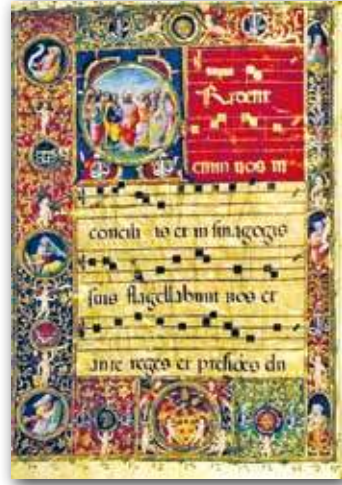 Tradent
enim vos in
concili is et in sinagogis
suis flagellabunt vos et
ante reges et presides du